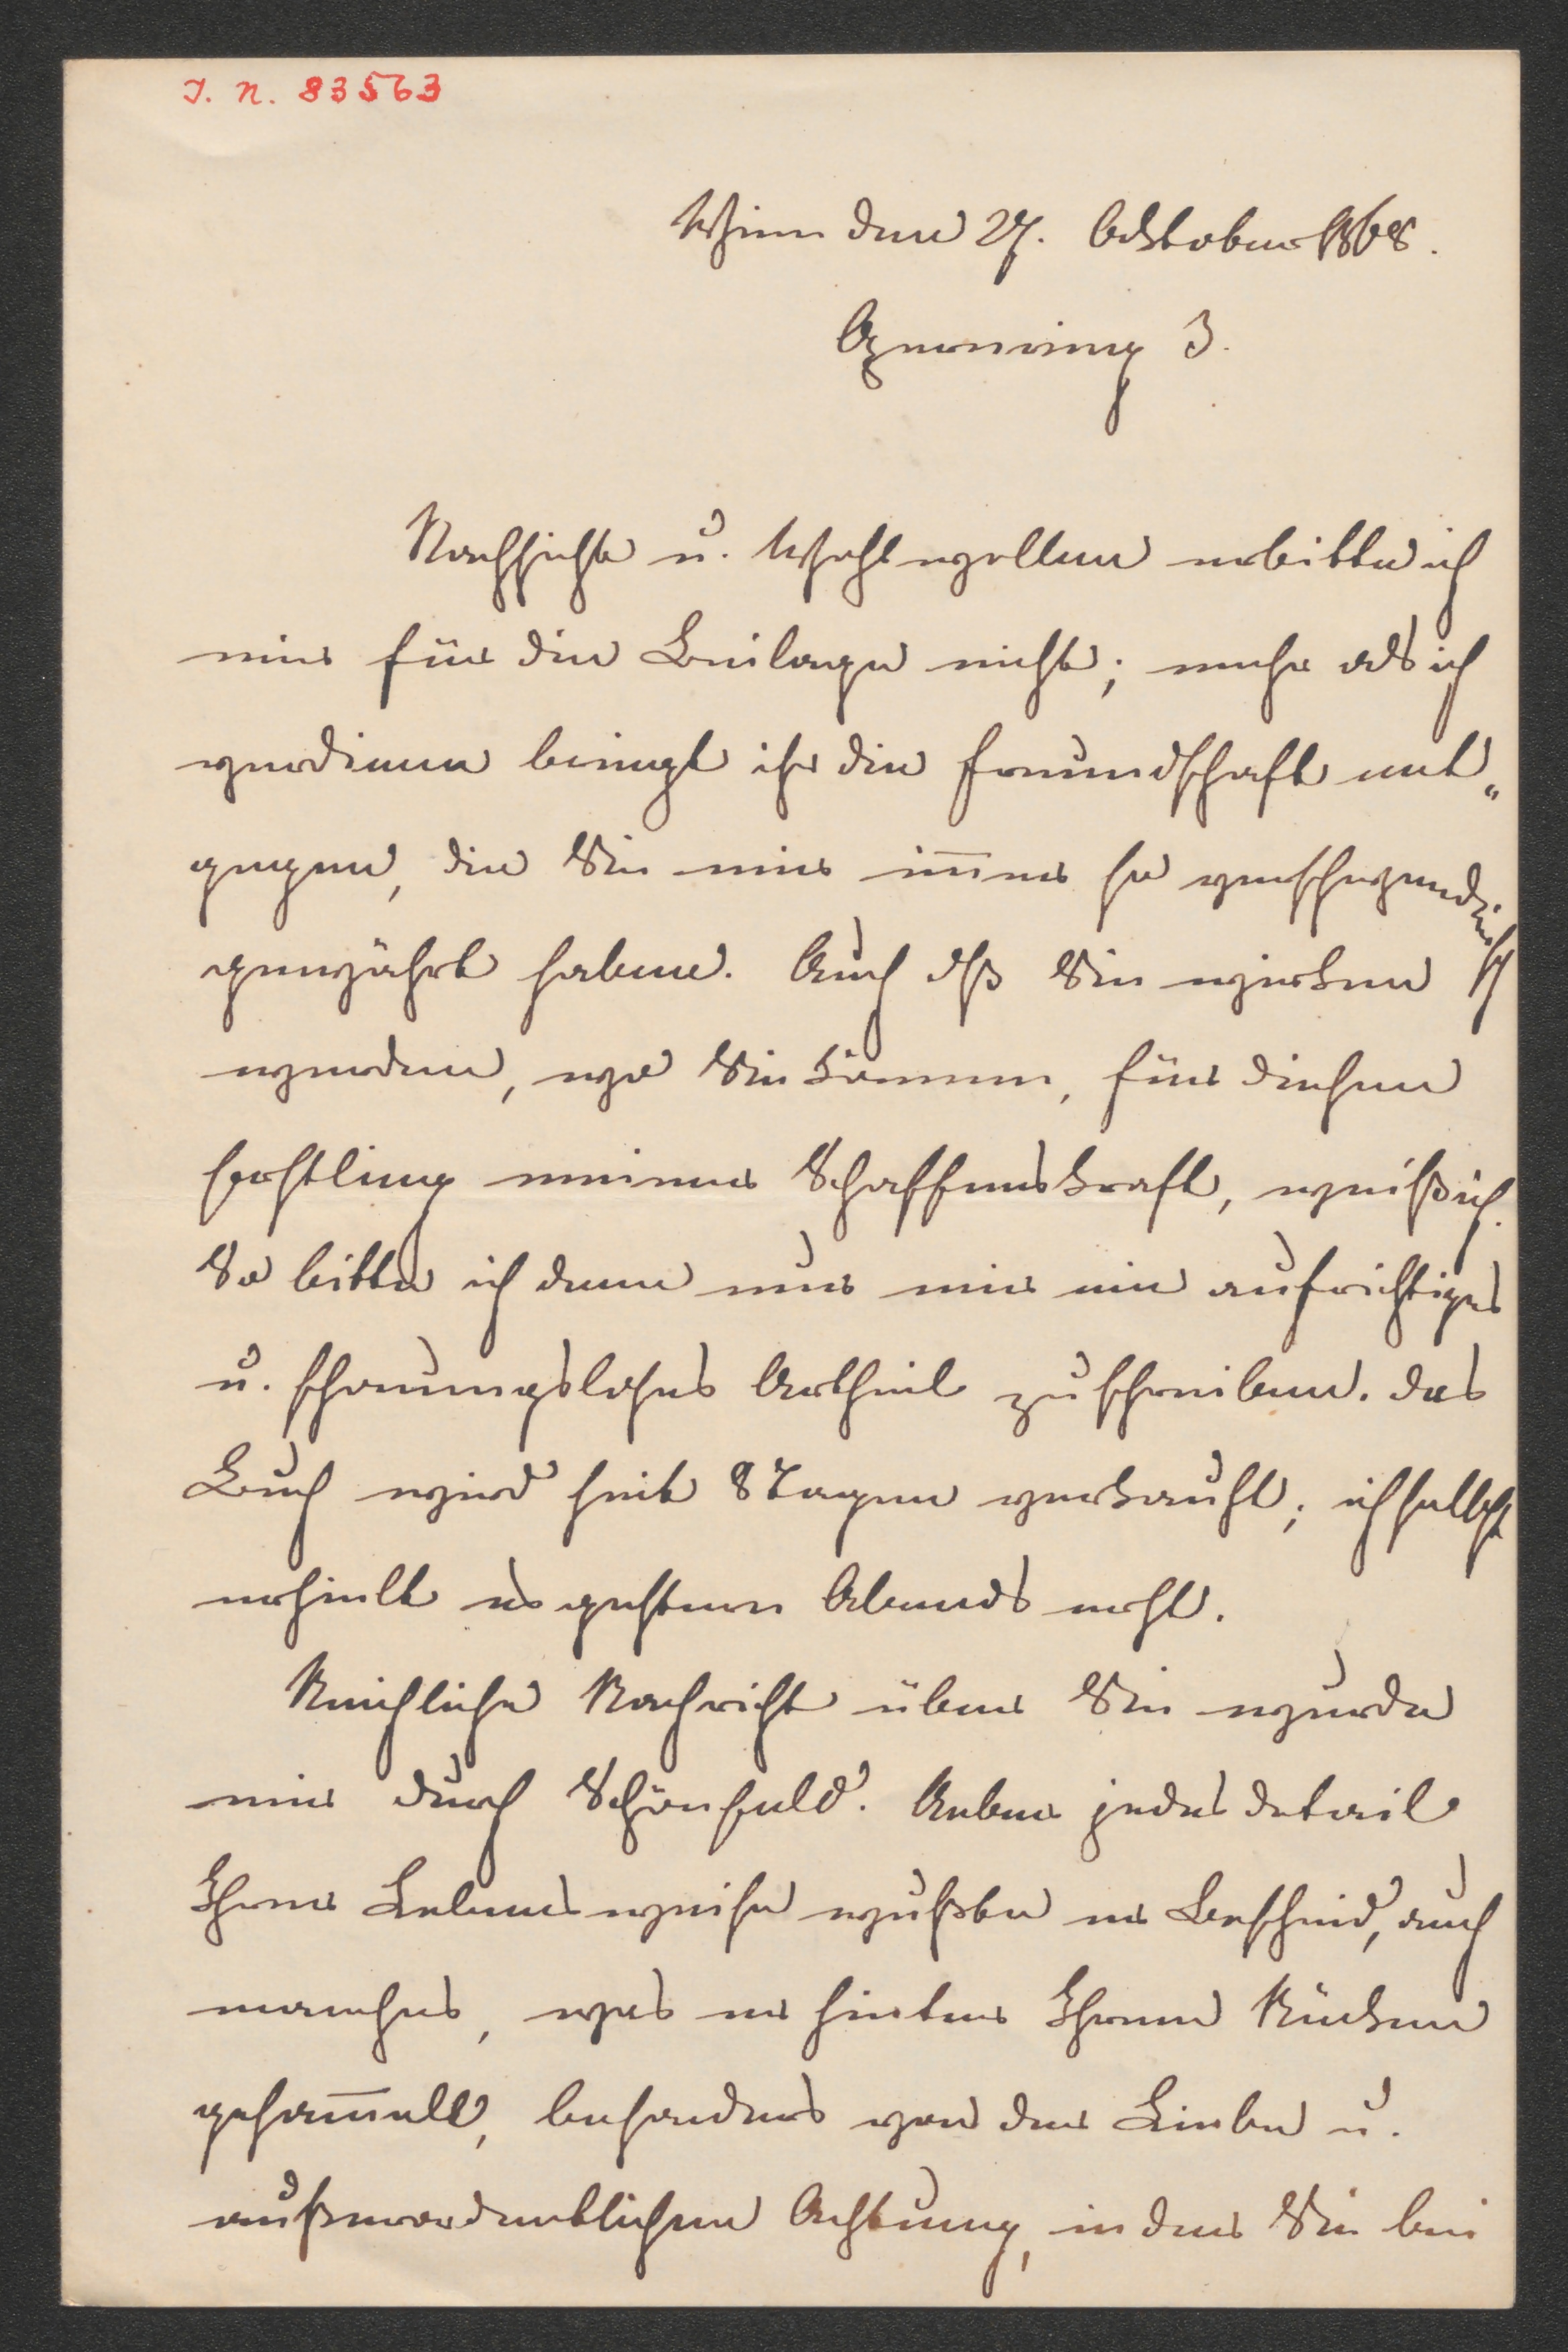 I. N. 83563
Wien den 27. Oktober 1868.
Opernring 3.
Nachsicht u. Wohlwollen erbitte ich
mir für die Beilage nicht; mehr als ich
verdiene bringt ihr die Freundschaft ent„
gegen, die Sie mir im̅er so verschwenderisch
gewährt haben. Auch dß Sie wirken
werden, wo Sie können, für diesen
Erstling meiner Schaffenskraft, weiß ich.
So bitte ich denn nur mir ein aufrichtiges
u. schonungsloses Urtheil zu schreiben. Das
Buch wird seit 8 Tagen verkauft; ich selbst
erhielt es gestern Abends erst.
Reichliche Nachricht über Sie wurde
mir durch Schönfeld. Ueber jedes Detail
Ihrer Lebensweise wußte er Bescheid, auch
manches, was er hinter Ihrem Rücken
gesam̅elt, besonders von der Liebe u.
außerordentlichen Achtung, in der Sie bei